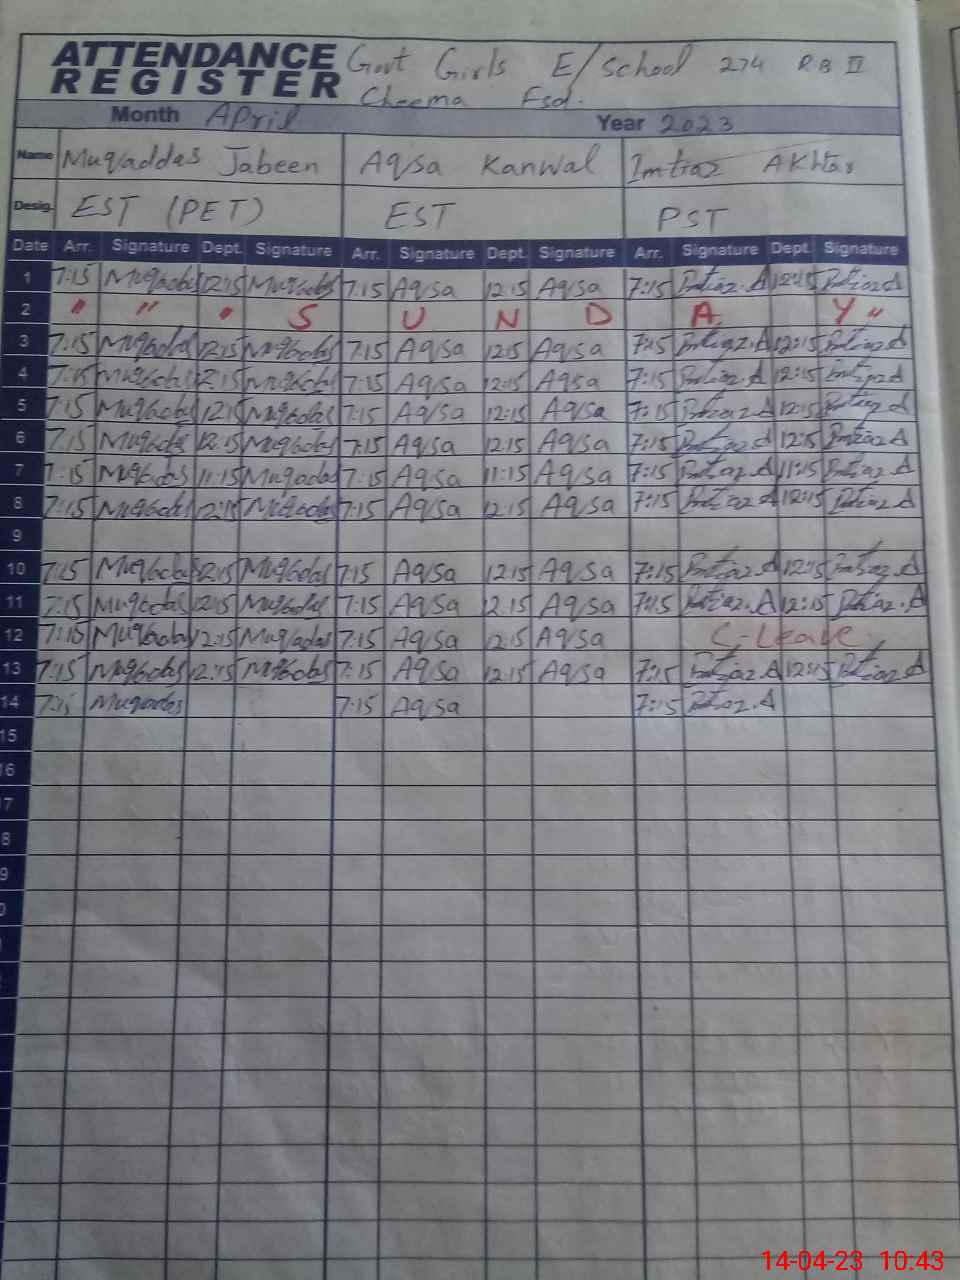 ATTENDANCE REGISTER Govt Girls E/school 274 RB II
Cheema Fsd.
Month April Year 2023
Name Muqaddas Jabeen Aqsa Kanwal Imtiaz Akhtar
Desig. EST (PET) EST PST
Date Arr. Signature Dept. Signature Arr. Signature Dept. Signature Arr. Signature Dept. Signature
1 7:15 Muqadas 12:15 Muqadas 7:15 Aqsa 12:15 Aqsa 7:15 Imtiaz.A 12:15 Imtiaz.A
2 " " " S U N D A Y "
3 7:15 Muqadas 12:15 Muqadas 7:15 Aqsa 12:15 Aqsa 7:15 Imtiaz.A 12:15 Imtiaz.A
4 7:15 Muqadas 12:15 Muqadas 7:15 Aqsa 12:15 Aqsa 7:15 Imtiaz.A 12:15 Imtiaz.A
5 7:15 Muqadas 12:15 Muqadas 7:15 Aqsa 12:15 Aqsa 7:15 Imtiaz.A 12:15 Imtiaz.A
6 7:15 Muqadas 12:15 Muqadas 7:15 Aqsa 12:15 Aqsa 7:15 Imtiaz.A 12:15 Imtiaz.A
7 7:15 Muqadas 11:15 Muqadas 7:15 Aqsa 11:15 Aqsa 7:15 Imtiaz.A 11:15 Imtiaz.A
8 7:15 Muqadas 12:15 Muqadas 7:15 Aqsa 12:15 Aqsa 7:15 Imtiaz.A 12:15 Imtiaz.A
9
10 7:15 Muqadas 12:15 Muqadas 7:15 Aqsa 12:15 Aqsa 7:15 Imtiaz.A 12:15 Imtiaz.A
11 7:15 Muqadas 12:15 Muqadas 7:15 Aqsa 12:15 Aqsa 7:15 Imtiaz.A 12:15 Imtiaz.A
12 7:15 Muqadas 12:15 Muqadas 7:15 Aqsa 12:15 Aqsa C-Leave
13 7:15 Muqadas 12:15 Muqadas 7:15 Aqsa 12:15 Aqsa 7:15 Imtiaz.A 12:15 Imtiaz.A
14 7:15 Muqadas 7:15 Aqsa 7:15 Imtiaz.A
15
16
7
8
9
0
14-04-23 10:43